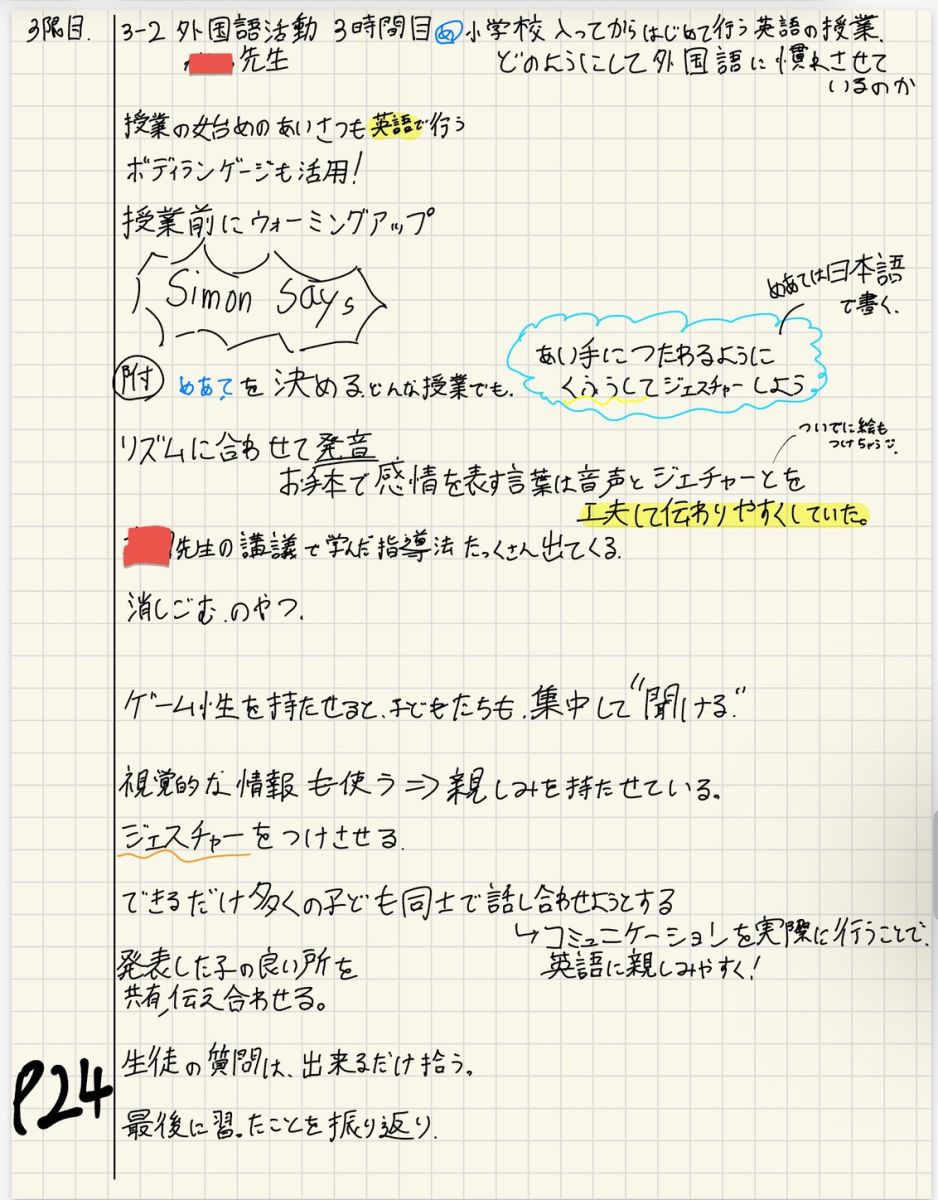 3限目. 3-2 外国語活動 3時間目 め 小学校 入ってからはじめて行う英語の授業.
先生 どのようにして外国語に慣れさせて
いるのか
授業の始めのあいさつも英語で行う
ボディランゲージも活用!
授業前にウォーミングアップ
Simon Says
めあては日本語
で書く.
あい手につたわるように
くふうしてジェスチャーしよう
附 めあてを決める.どんな授業でも.
ついでに絵も
つけちゃう
リズムに合わせて発音
お手本で感情を表す言葉は音声とジェチャーとを
工夫して伝わりやすくしていた。
先生の講義で学んだ指導法たっくさん出てくる.
消しごむ.のやつ.
ゲーム性を持たせると、子どもたちも、集中して"聞ける"
視覚的な情報も使う⇒親しみを持たせている。
ジェスチャーをつけさせる.
できるだけ多くの子ども同士で話し合わせようとする
↳コミュニケーションを実際に行うことで、
英語に親しみやすく!
発表した子の良い所を
共有,伝え合わせる。
生徒の質問は、出来るだけ拾う。
P24
最後に習ったことを振り返り.